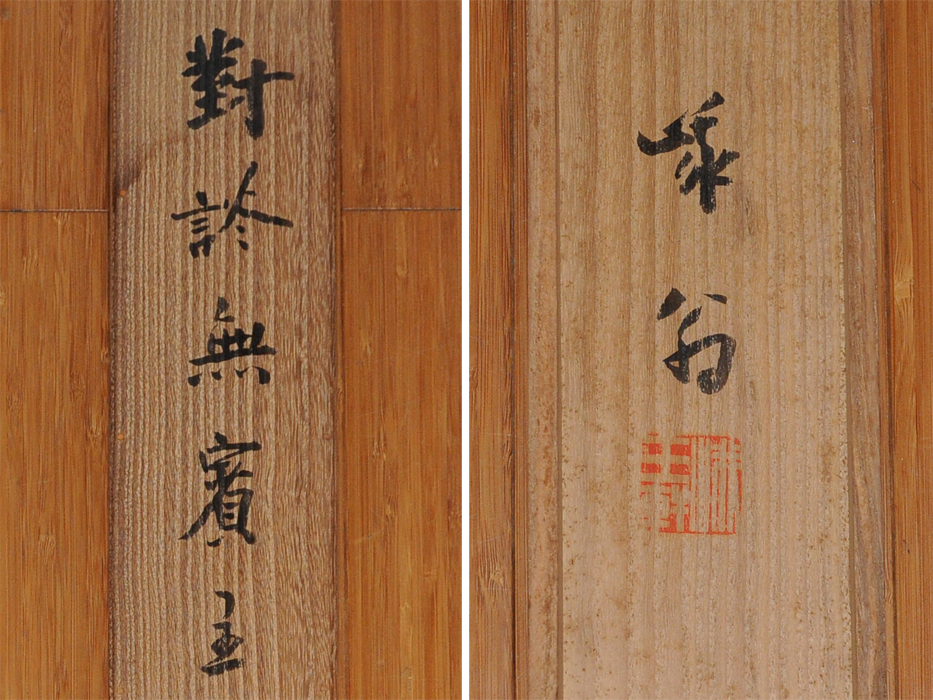 對談無賓主
翁